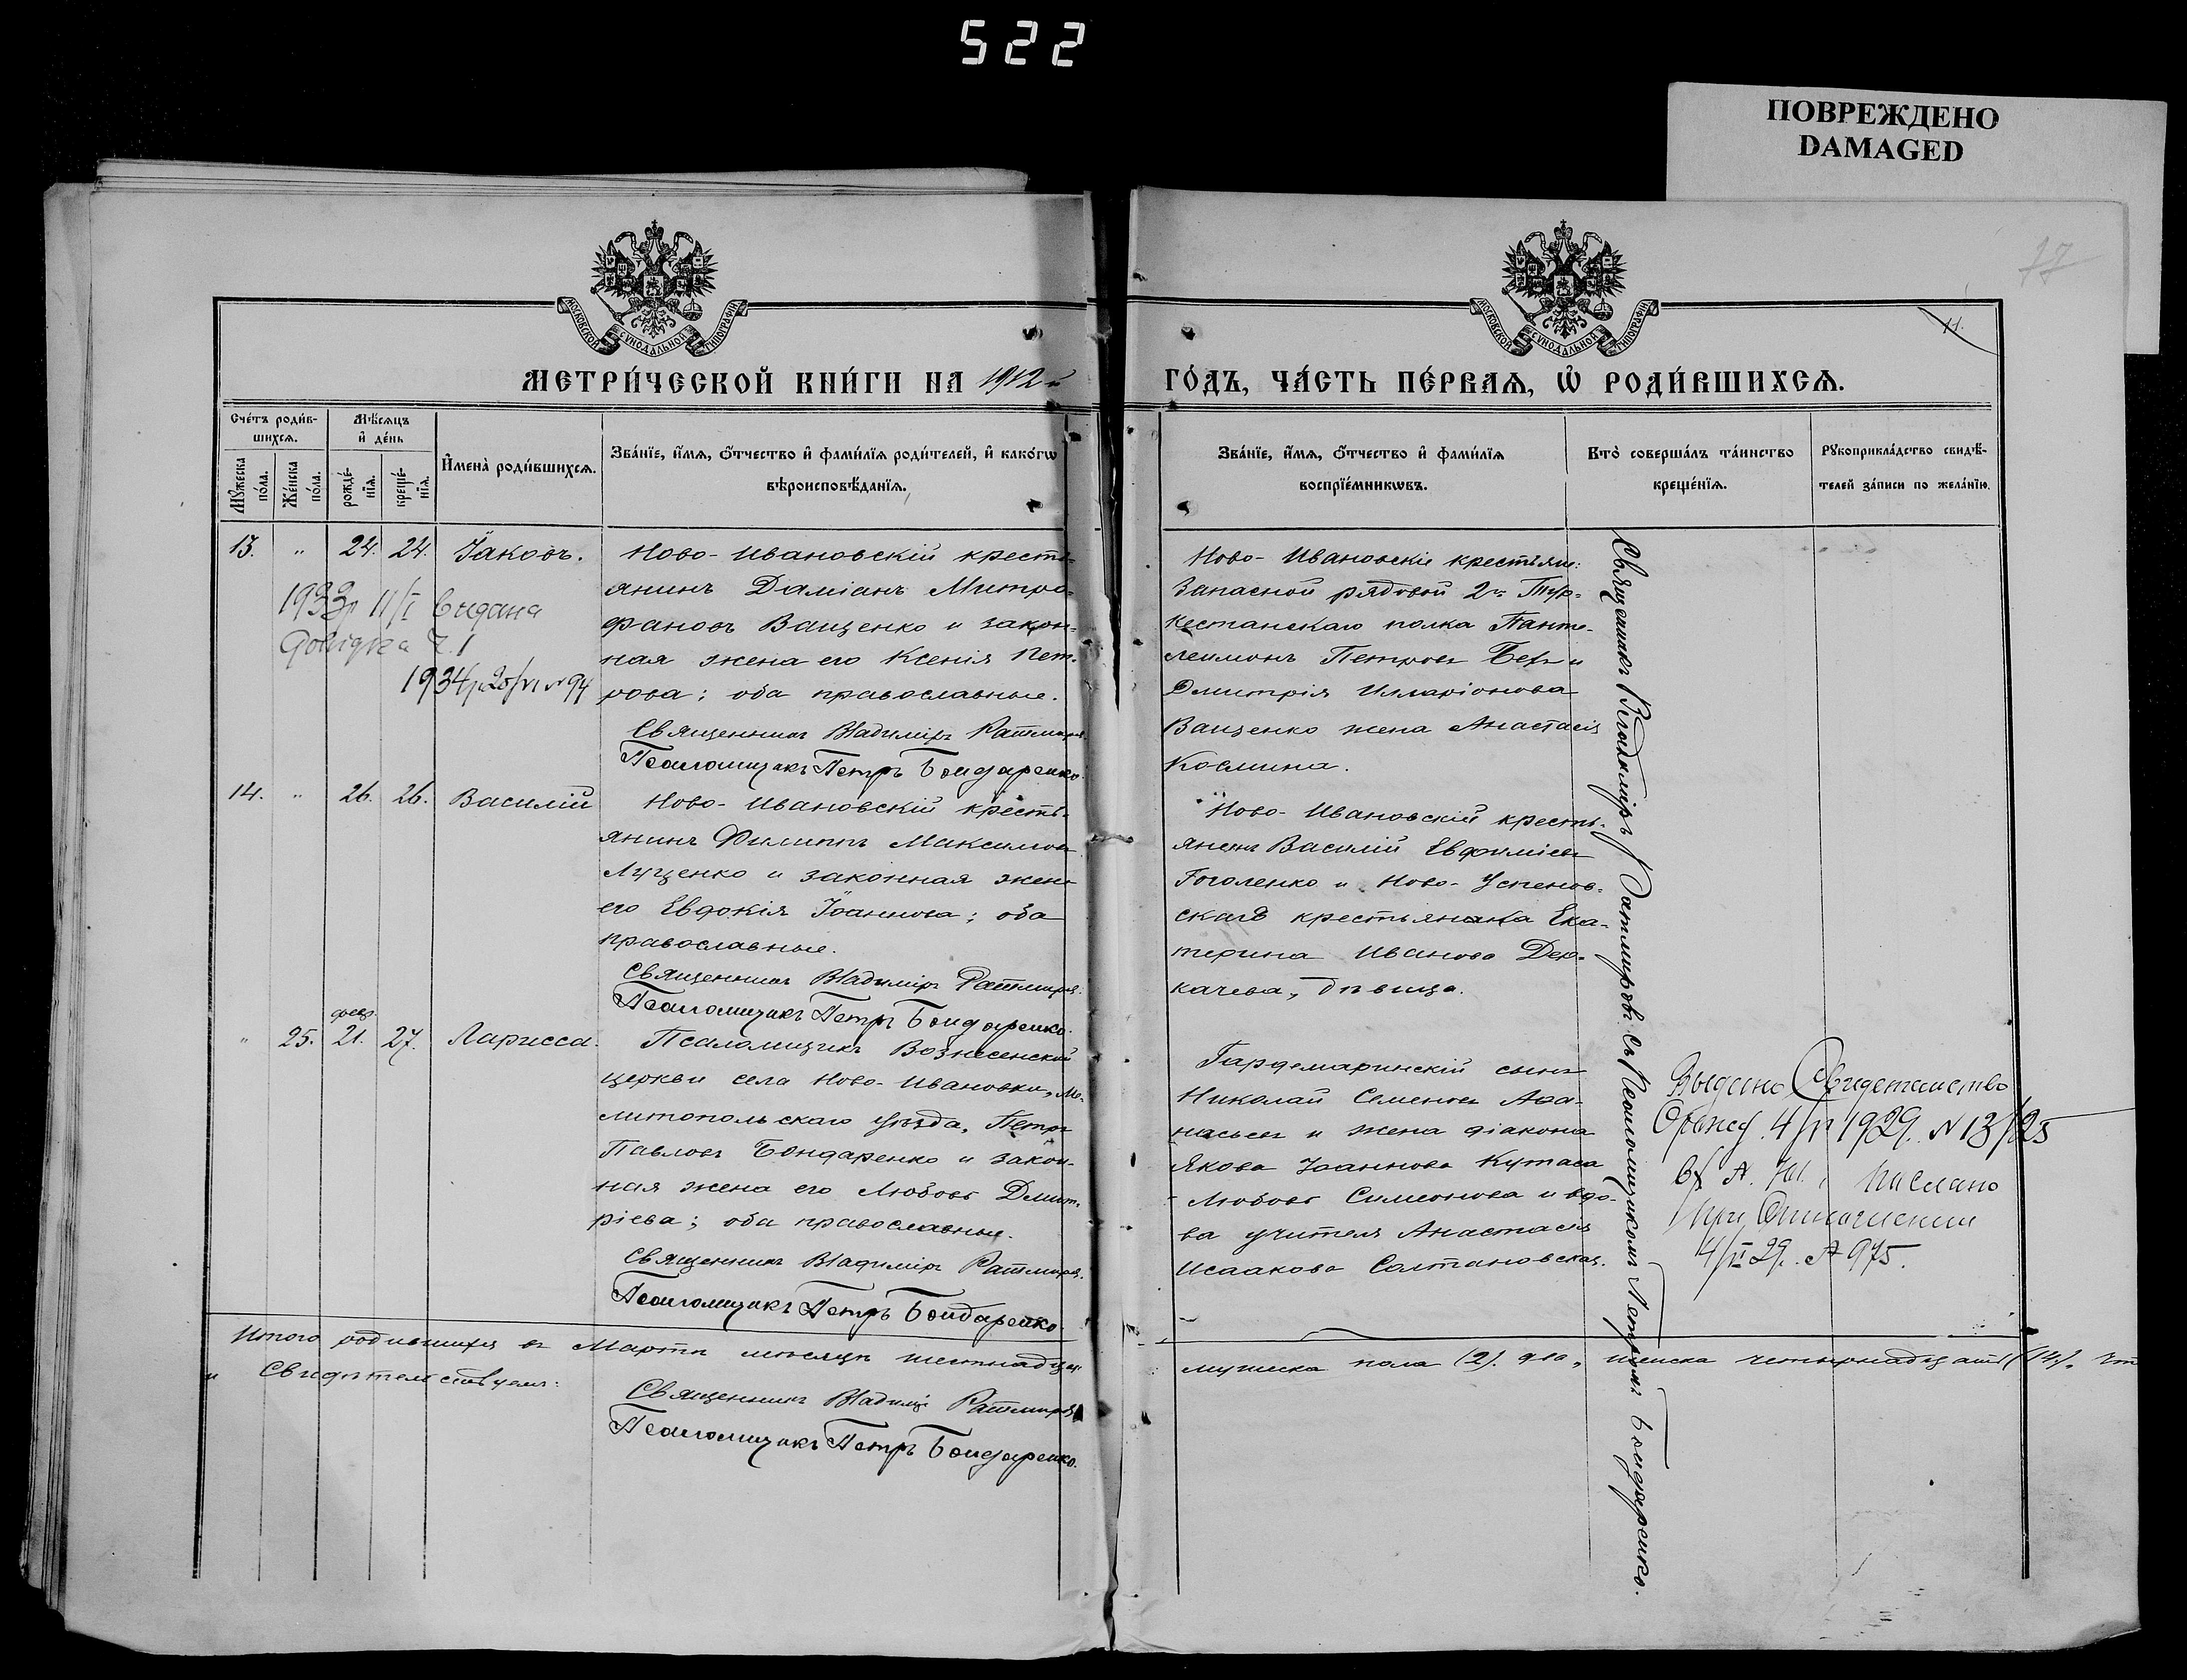 522
ПОВРЕЖДЕНО
DAMAGED
17
11.
МОСКОВСКОЙ СѴНОДАЛЬНОЙ ТИПОГРАФІИ
МОСКОВСКОЙ СѴНОДАЛЬНОЙ ТИПОГРАФІИ
МЕТРИ́ЧЕСКОЙ КНИ́ГИ НА 1912 й
ГО́ДЪ, ЧА́СТЬ ПЕ́РВАѦ, Ѡ҆ РОДИ́ВШИХСѦ.
Счетъ роди́в-
шихсѧ.
Мѣ́сѧцъ
и҆ де́нь
Мꙋ́жеска
по́ла.
Же́нска
по́ла.
рожде́-
нїѧ.
креще́-
нїѧ.
И҆мена̀ роди́вшихсѧ.
Зва́нїе, и҆́мѧ, ѻ҆́тчество и҆ фами́лїѧ роди́телей, и҆ како́гѡ
вѣроисповѣ́данїѧ.
Зва́нїе, и҆́мѧ, ѻ҆́тчество и҆ фами́лїѧ
воспрїе́мникѡвъ.
Кто̀ соверша́лъ та́инство
креще́нїѧ.
Рꙋкоприкла́дство свидѣ́-
телей за́писи по жела́нїю.
13. " 24. 24. Іаковъ.
Ново-Ивановскій кресть-
янинъ Даміанъ Митро-
фановъ Ващенко и закон-
ная жена его Ксенія Пет-
рова; оба православные.
Священникъ Владиміръ Ратмировъ.
Псаломщикъ Петръ Бондаренко.
1933р 11/I видана
довідка
1934р 20/VI № 94
Ново-Ивановскіе крестьян:
Запасной рядовой 2го Тур-
кестанскаго полка Панте-
леимонъ Петровъ и
Димитрія Илларіонова
Ващенко жена Анастасія
Космина.
14. " 26. 26. Василій
Ново-Ивановскій кресть-
янинъ Филиппъ Максимовъ
Луценко и законная жена
его Евдокія Іоаннова; оба
православные.
Священникъ Владиміръ Ратмировъ.
Псаломщикъ Петръ Бондаренко.
Ново-Ивановскій кресть-
янинъ Василій Евфиміевъ
Гоголенко и Ново-Успенов-
ская крестьянка Ека-
терина Иванова Дер-
качева, дѣвица.
" 25. февр. 21. 27. Ларисса.
Псаломщикъ Вознесенской
церкви села Ново-Ивановки, Ме-
литопольскаго уѣзда, Петръ
Павловъ Бондаренко и закон-
ная жена его Любовь Димит-
ріева; оба православные.
Священникъ Владиміръ Ратмировъ.
Псаломщикъ Петръ Бондаренко.
Гардемаринскій сынъ
Николай Семеновъ Аѳа-
насьевъ и жена діакона
Якова Іоаннова Кутаса
Любовь Симеонова и вдо-
ва учителя Анастасія
Исаакова Солтановская.
Священникъ Владиміръ Ратмировъ съ Псаломщикомъ Петромъ Бондаренко.
Выдано Свидетельство
4/II 1929. № 13/25
Послано
при Отношении
4/II 29. № 975.
Итого родившихся въ Мартѣ мѣсяцѣ шестнадцать:
мужеска пола (2). два, женска четырнадцать (14). Что
и Свидѣтельствуемъ:
Священникъ Владиміръ Ратмировъ
Псаломщикъ Петръ Бондаренко.